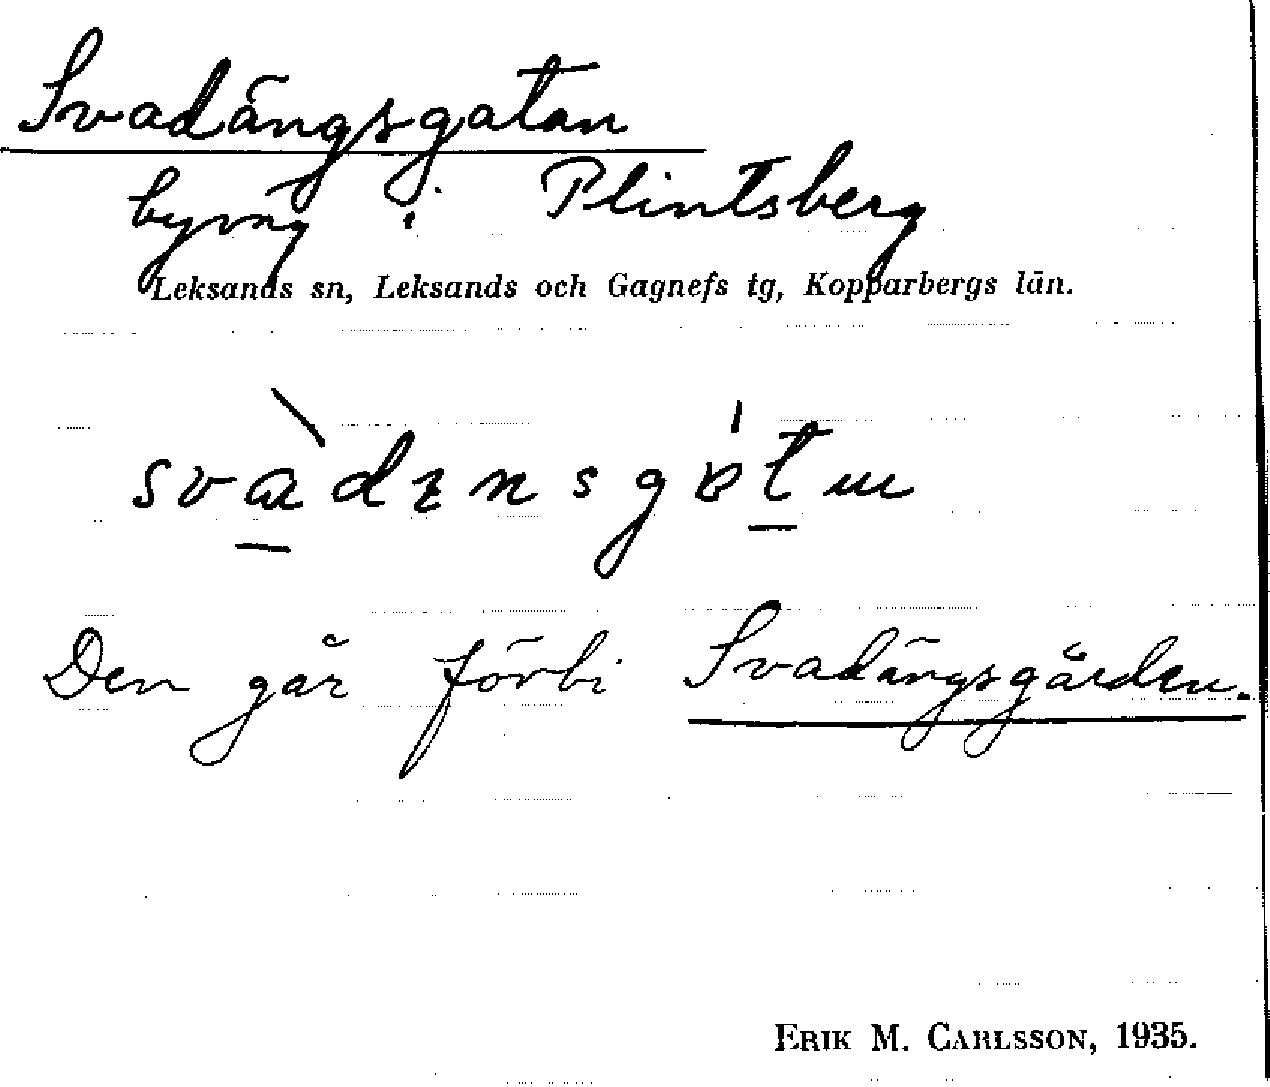 Svadängsgatan
byväg i Plintsberg
Leksands sn, Leksands och Gagnefs tg, Kopparbergs län.
Den går förbi Svadängsgården.
ERIK M. CARLSSON, 1935.